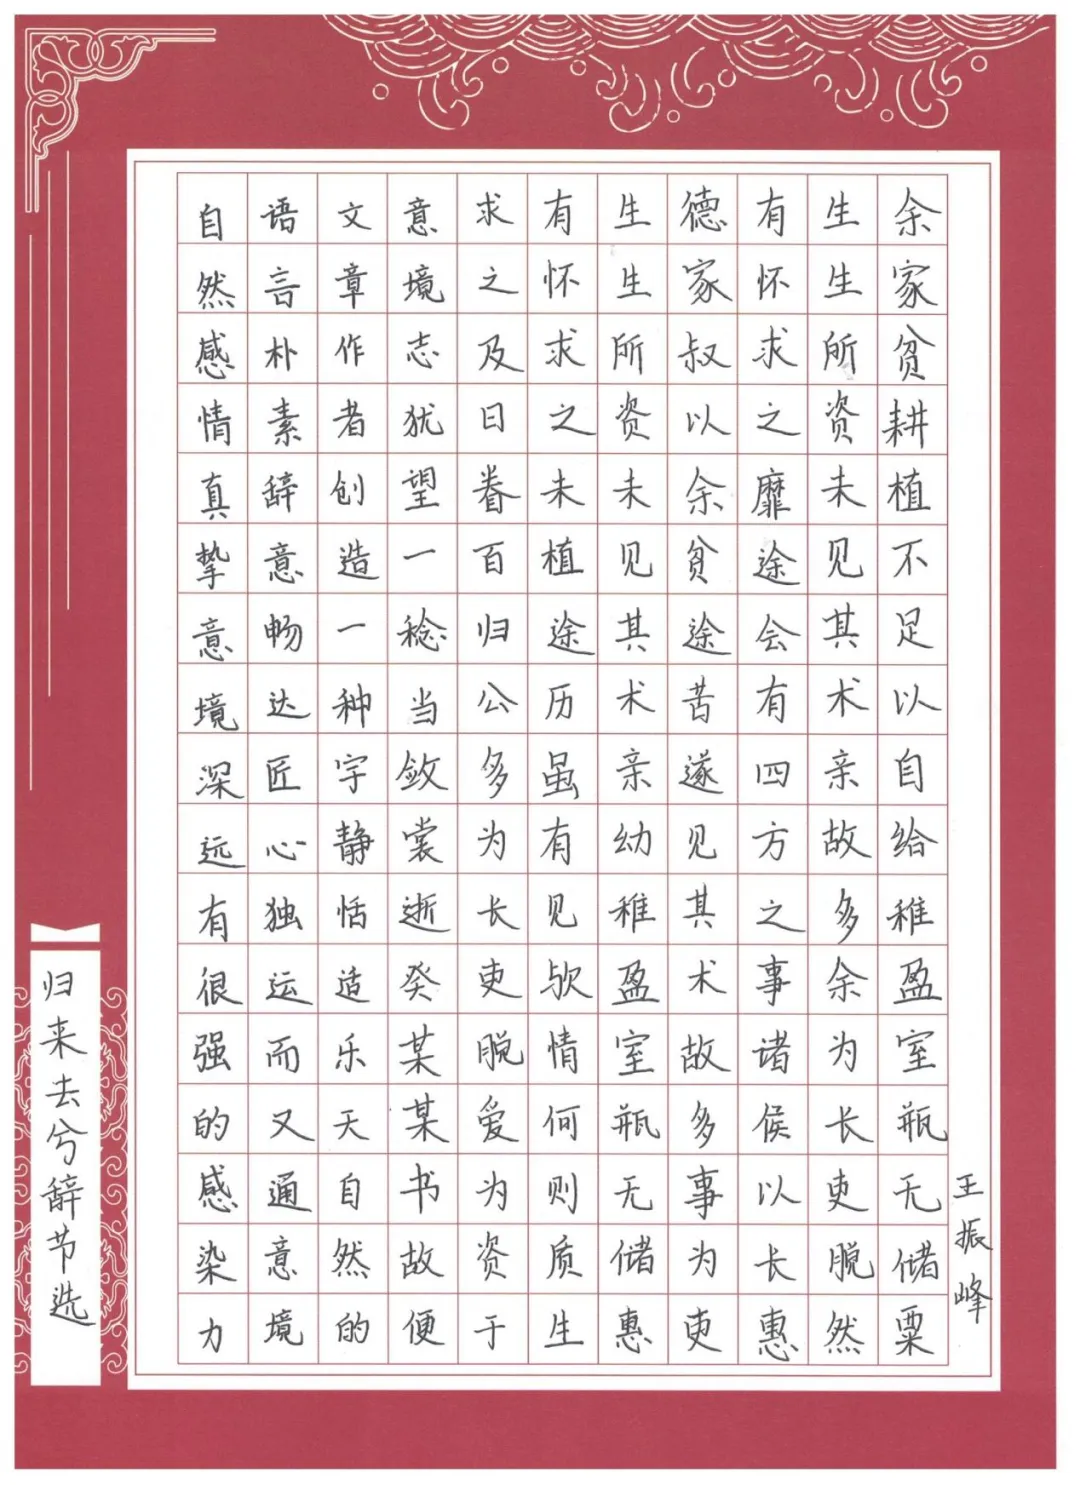 余家贫耕植不足以自给稚盈室瓶无储粟
生生所资未见其术亲故多余为长吏脱然
有怀求之靡途会有四方之事诸侯以长惠
德家叔以余贫途苦遂见其术故多事为吏
生生所资未见其术亲幼稚盈室瓶无储惠
有怀求之未植途历虽有见欤情何则质生
求之及日眷百归公多为长吏脱爱为资于
意境志犹望一稔当敛裳逝癸某某书故便
文章作者创造一种宇静恬适乐天自然的
语言朴素辞意畅达匠心独运而又通意境
自然感情真挚意境深远有很强的感染力
王振峰
归来去兮辞节选